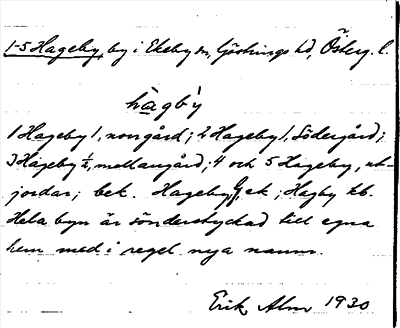 1-5 Hageby, by i Ekeby sn, Göstrings hd, Österg. l.
hàgby
1 Hageby 1, norrgård; 2 Hageby 1, Södergård;
3 Hageby ½, mellangård; 4 och 5 Hageby, ut-
jordar; bek. Hageby ek; Hagby kb.
Hela byn är sönderstyckad till egna
hem med i regel nya namn.
Erik Alm 1930